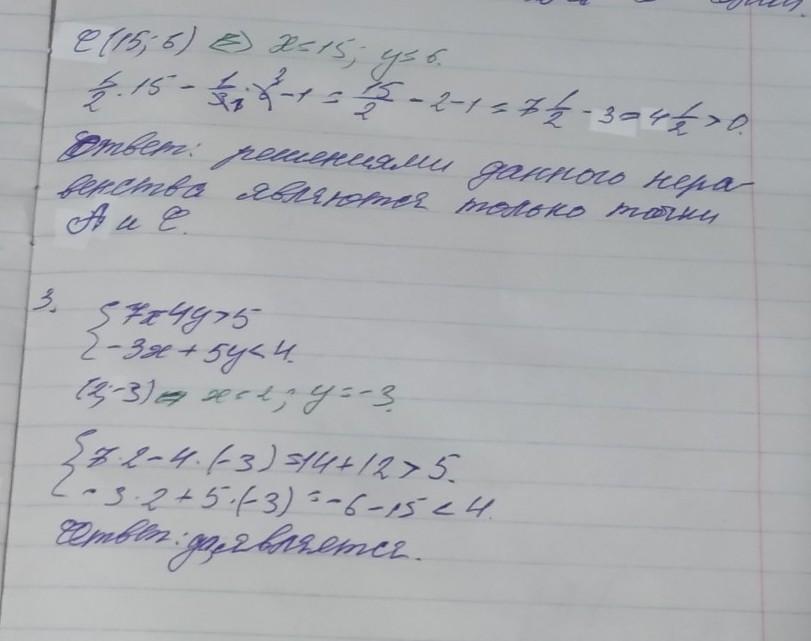 C(15; 6) <=> x=15; y=6.
1/2 · 15 - 1/3 · 6 - 1 = 15/2 - 2 - 1 = 7 1/2 - 3 = 4 1/2 > 0.
Ответ: решениями данного нера-
венства являются только точки
A и C.
3.
{ 7x-4y>5
{ -3x+5y<4.
(2;-3) x=2; y=-3.
{ 7·2-4·(-3)=14+12>5.
{ -3·2+5·(-3)=-6-15<4.
Ответ: да, является.